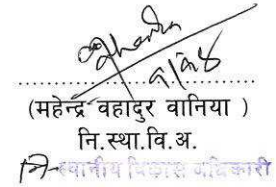 (महेन्द्र वहादुर वानिया )
नि.स्था.वि.अ.
स्थानीय विकास अधिकारी